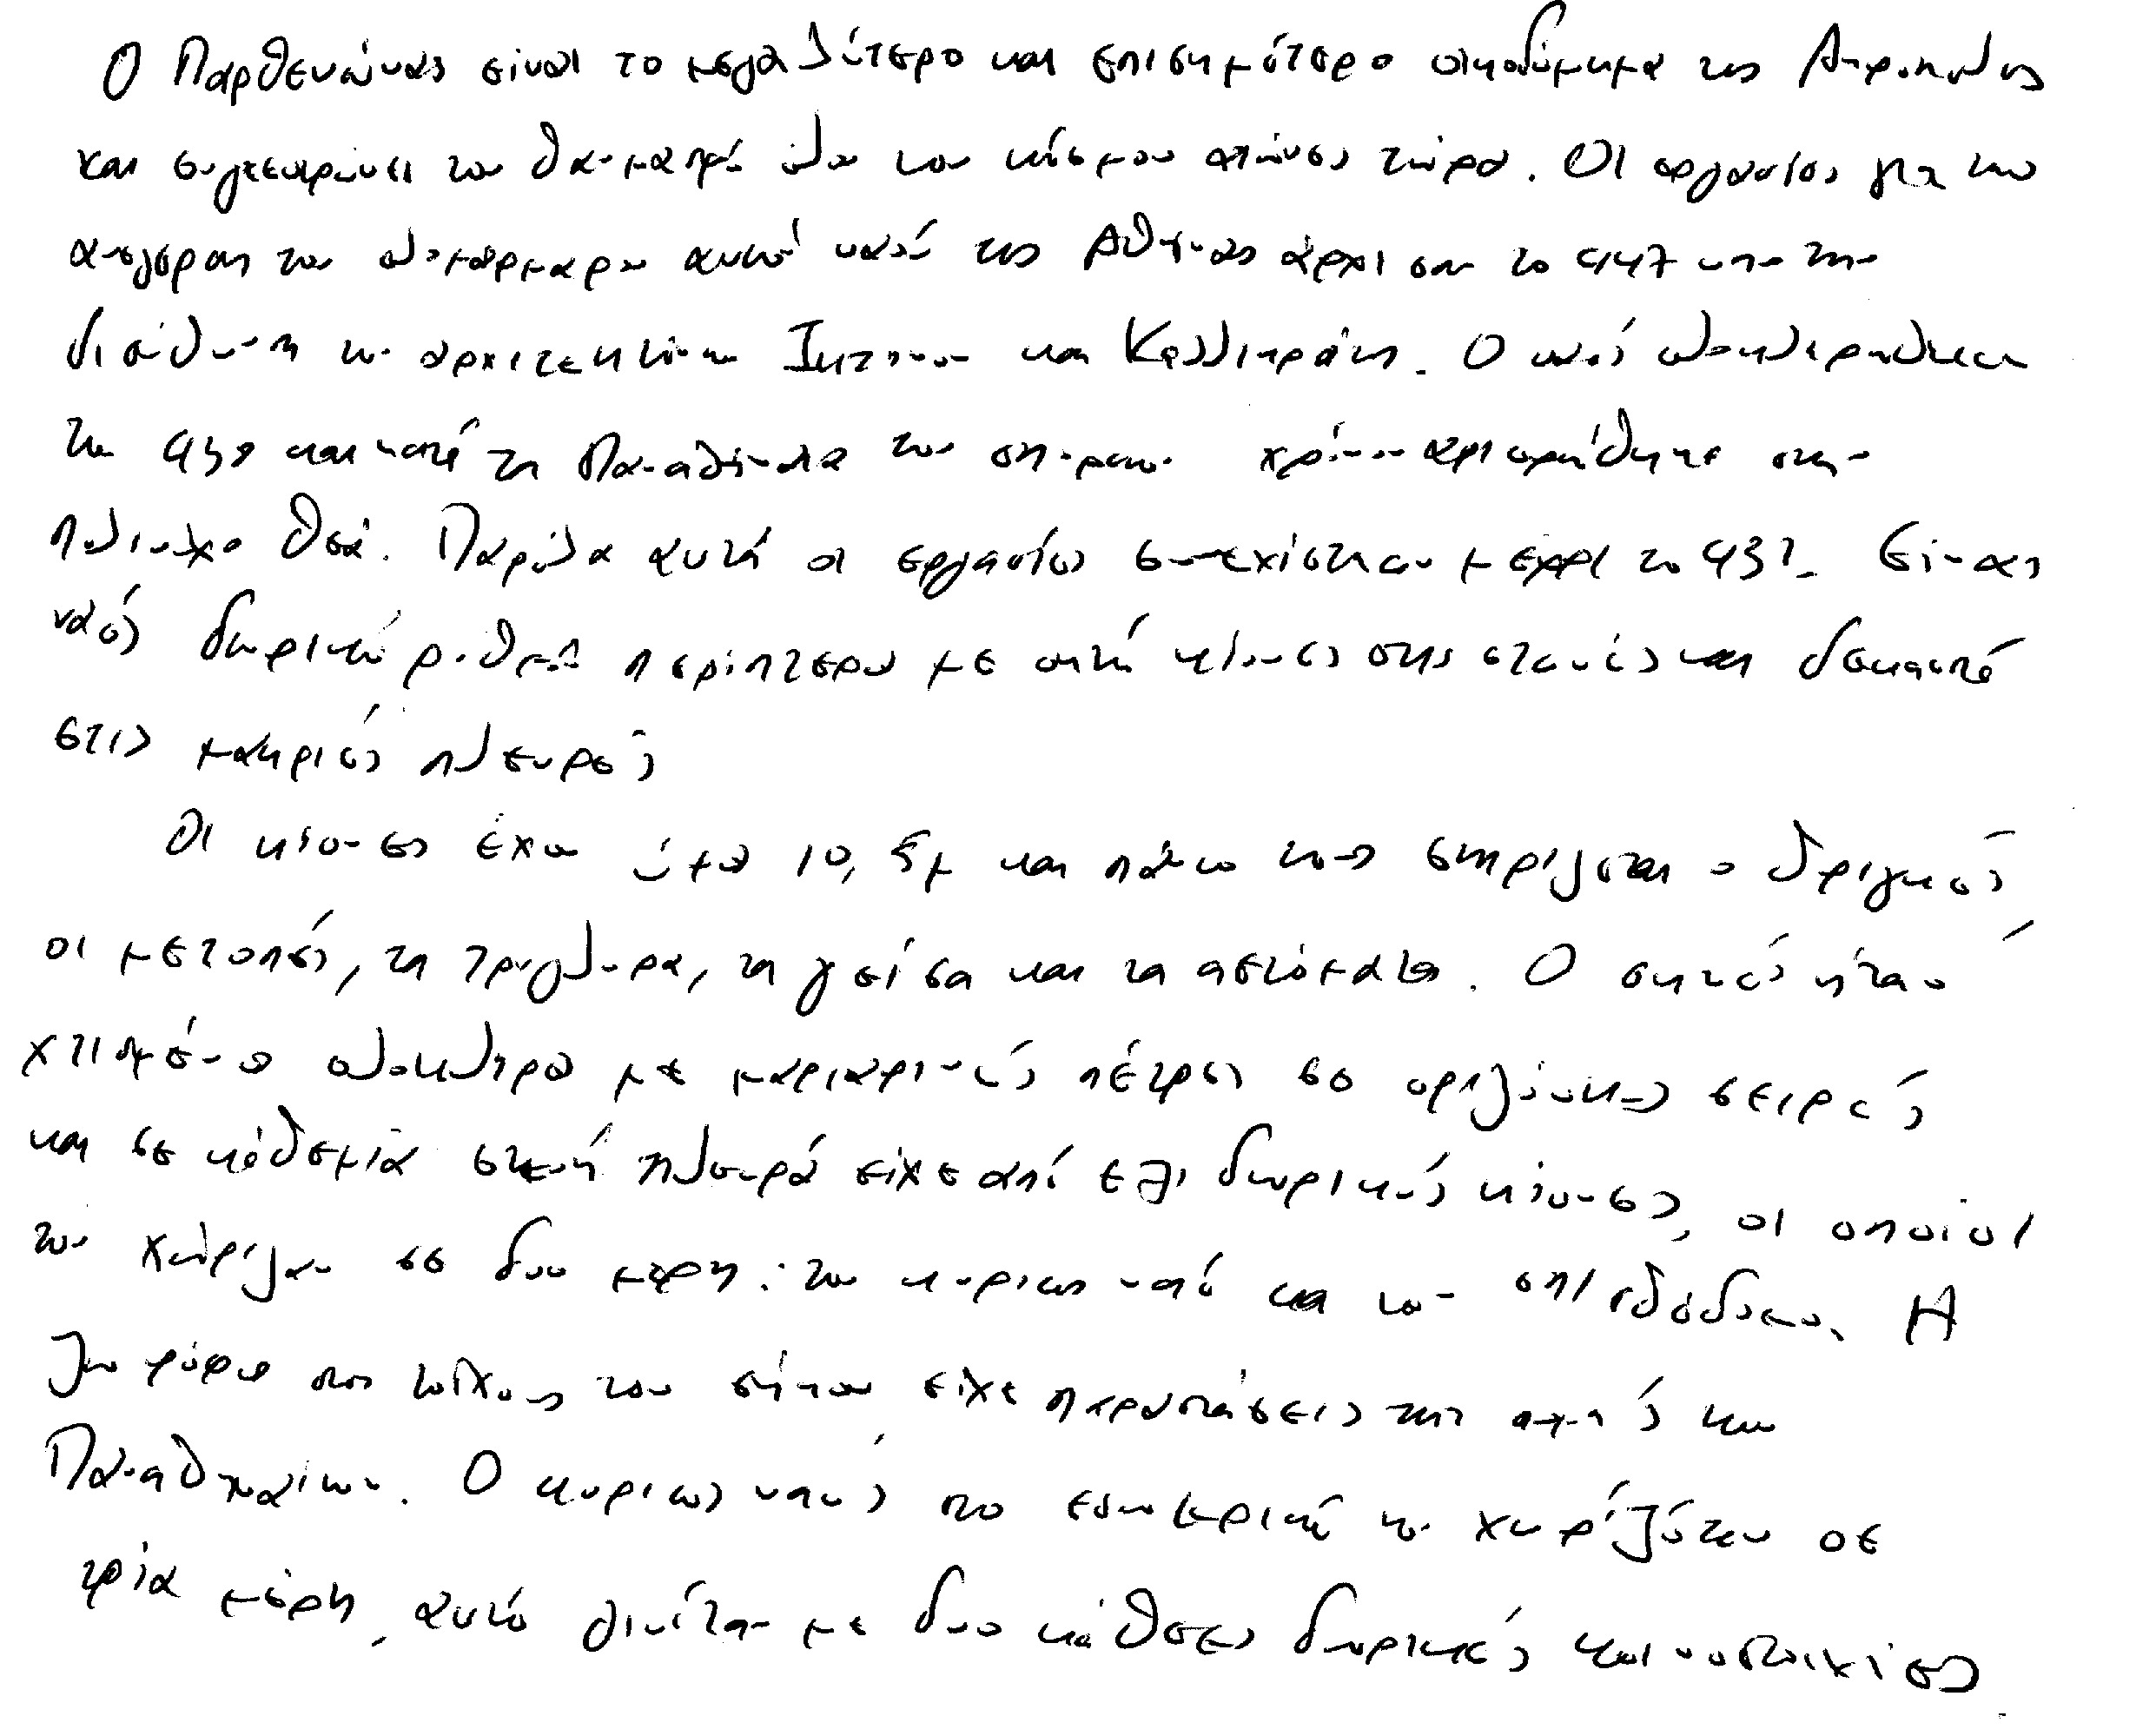 Ο Παρθενώνας είναι το μεγαλύτερο και επισημότερο οικοδόμημα της Ακρόπολης
και συγκεντρώνει τον θαυμασμό όλου του κόσμου αιώνες τώρα. Οι εργασίες για την
ανέγερση του ολομάρμαρου αυτού ναού της Αθηνάς άρχισαν το 447 υπό την
διεύθυνση των αρχιτεκτόνων Ικτίνου και Καλλικράτη. Ο ναός ολοκληρώθηκε
το 438 και κατά τα Παναθήναια του επόμενου χρόνου αφιερώθηκε στην
πολιούχο θεά. Παρόλα αυτά οι εργασίες συνεχίστηκαν μέχρι το 432. Είναι
ναός δωρικού ρυθμού περίπτερου με οκτώ κίονες στις στενές και δεκαεπτά
στις μακριές πλευρές
Οι κίονες έχουν ύψος 10,5μ και πάνω τους στηρίζεται ο θριγκός,
οι μετοπές, τα τρίγλυφα, τα γείσα και τα αετώματα. Ο σηκός ήταν
χτισμένος ολόκληρος με μαρμαρινές πέτρες σε οριζόντιες σειρές
και σε κάθε μία στενή πλευρά είχε από έξι δωρικούς κίονες, οι οποίοι
τον χώριζαν σε δυο μέρη: τον κυρίως ναό και τον οπισθόδομο. Η
ζωφόρος στους τοίχους του σηκού είχε παραστάσεις από την πομπή των
Παναθηναίων. Ο κυρίως ναός στο εσωτερικό του χωριζόταν σε
τρία μέρη, αυτό γινόταν με δυο κάθετες δωρικές κιονοστοιχίες